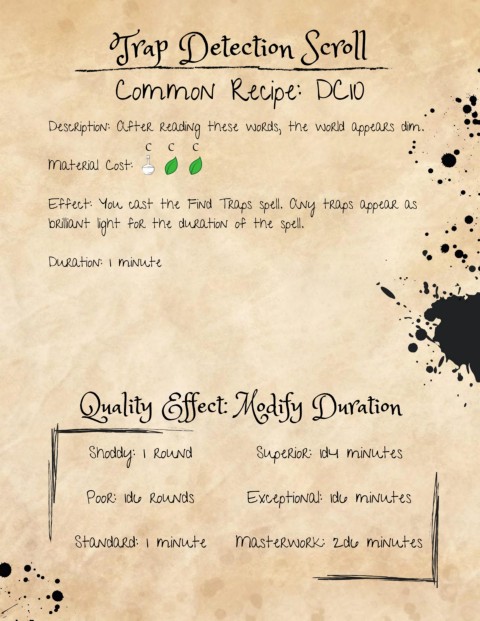 Trap Detection Scroll
Common Recipe: DC10
Description: After reading these words, the world appears dim.
C C C
Material Cost:
Effect: You cast the Find Traps spell. Any traps appear as
brilliant light for the duration of the spell.
Duration: 1 minute
Quality Effect: Modify Duration
Shoddy: 1 round
Superior: 1d4 minutes
Poor: 1d6 rounds
Exceptional: 1d6 minutes
Standard: 1 minute
Masterwork: 2d6 minutes